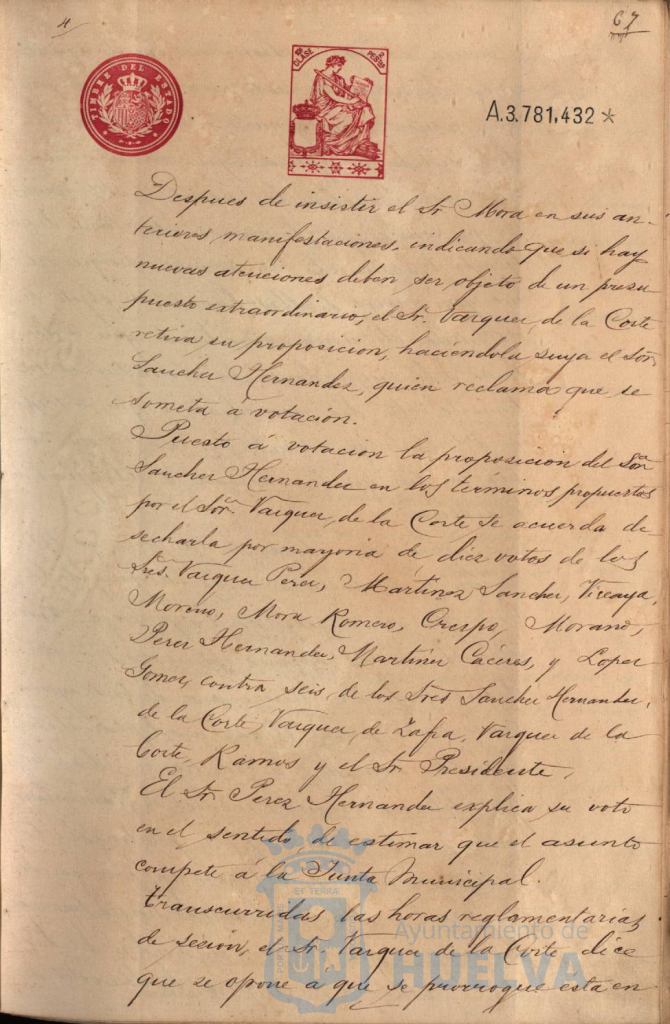 4
67
TIMBRE DEL ESTADO
CLASE
2 PESETAS
A.3.781,432*
Despues de insistir el Sr. Mora en sus an-
teriores manifestaciones, indicando que si hay
nuevas atenciones deben ser objeto de un presu
puesto extraordinario, el Sr. Vazquez de la Corte
retira su proposicion, haciéndola suya el Sor.
Sanchez Hernandez, quien reclama que se
someta á votación.
Puesto á votacion la proposicion del Sor.
Sanchez Hernandez en los terminos propuestos
por el Sor. Vazquez de la Corte se acuerda de
secharla por mayoria de diez votos de los
Sres. Vazquez Perez, Martinez Sanchez, Vizcaya,
Moreno, Mora Romero, Crespo, Morano,
Perez Hernandez, Martinez Cáceres, y Lopez
Gomez, contra seis, de los Sres Sanchez Hernandez,
de la Corte, Vazquez de Zafra, Vazquez de la
Corte, Ramos y el Sr. Presidente.
El Sr. Perez Hernandez explica su voto
en el sentido de estimar que el asunto
compete á la Junta Municipal.
Transcurridas las horas reglamentarias
de sesión, el Sr. Vazquez de la Corte dice
que se opone á que se prorrogue esta en
Ayuntamiento de
HUELVA